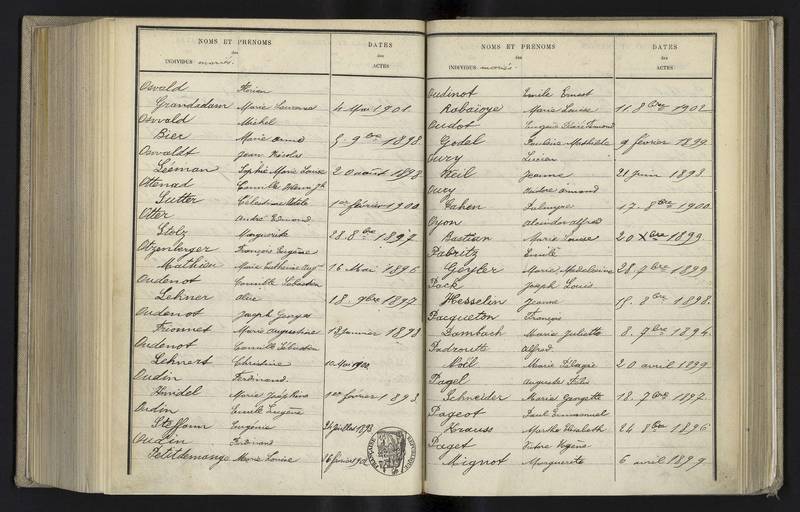 NOMS ET PRÉNOMS
des
INDIVIDUS mariés.
DATES
des
ACTES
Osvald Florian
Grandadam Marie Laurence 4 Mai 1901
Osvvald Michel
Bier Marie Anne 5. 9bre 1898
Osvvaldt Jean Nicolas
Léeman Sophie Marie Louise 20 août 1898
Ottenad Camille Henry Jh
Sutter Célestine 1er février 1900
Otter André Edmond
Stolz Marguerite 28. 8bre 1897
Otzenberger François Eugène
Mathieu Marie Catherine Augne 16 Mai 1896
Oudenot Camille Sébastien
Lehner Alice 18. 9bre 1897
Oudenot Joseph Georges
Frionnet Marie Augustine 18 janvier 1898
Oudenot Camille Sébastien
Lehnert Christine 10 Mai 1902
Oudin Ferdinand
Hindel Marie Joséphine 1er février 1893
Oudin Emile Eugène
Steffann Eugénie 24 juillet 1893
Oudin Ferdinand
Petitdemange Marie Louise 16 février
NOMS ET PRÉNOMS
des
INDIVIDUS mariés.
DATES
des
ACTES
Oudinot Emile Ernest
Rabaioye Marie Louise 11. 8bre 1902
Oudot Eugène
Godel Pauline Mathilde 9 février 1899
Oury Lucien
Weil Jeanne 21 juin 1893
Oury Isidore Armand
Cahen Palmyre 17. 8bre 1900
Oyon Alcindor Alfred
Bastian Marie Louise 20 Xbre 1899
Pabritz Emile
Geyler Marie Madeleine 28. 7bre 1899
Pack Joseph Louis
Hesselin Jeanne 15. 8bre 1898
Pacqueton François
Dambach Marie Juliette 8. 9bre 1894
Padroutte Alfred
Noël Marie Pélagie 20 avril 1899
Pagel Auguste
Schneider Marie Georgette 18. 7bre 1897
Pageot Paul Emmanuel
Krauss Marthe Elisabeth 24 8bre 1896
Paget Victor Eugène
Mignot Marguerite 6 avril 1899